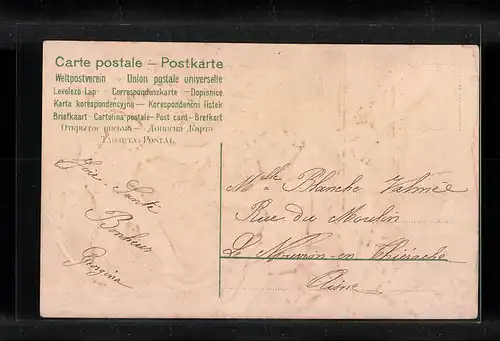 Carte postale — Postkarte
Weltpostverein — Union postale universelle
Levelező-Lap — Correspondenzkarte — Dopisnice
Karta korespondencyjna — Korespondenční lístek
Briefkaart — Cartolina postale — Post card — Brefkort
Открытое письмо —
Joie - Santé
Bonheur
Georgina
Mlle Blanche
Rue du Moulin
Le Nouvion-en-Thiérache
Aisne